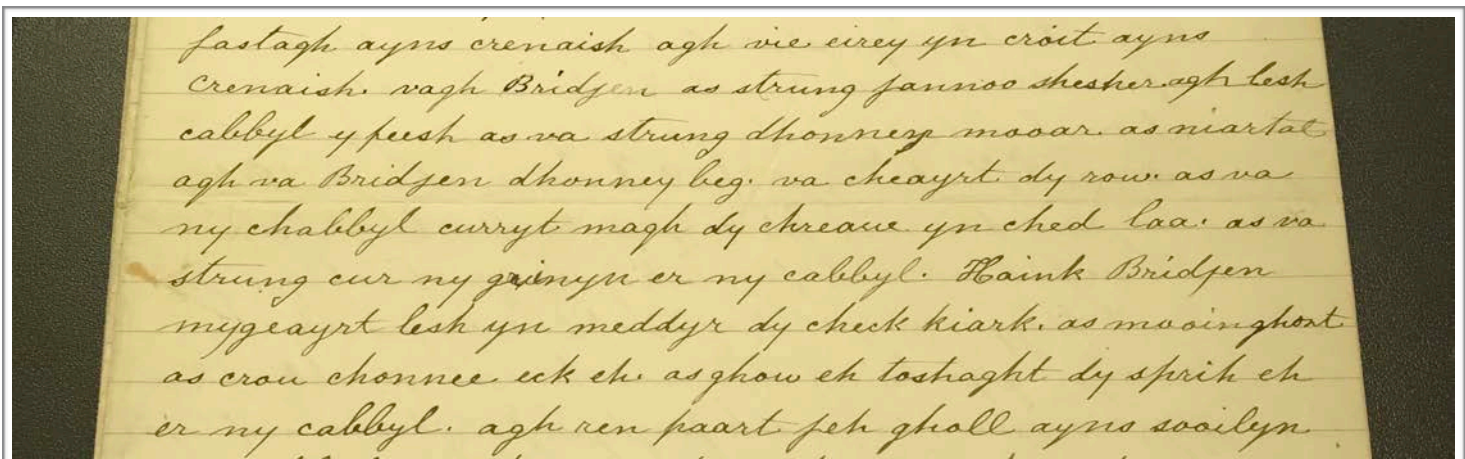 fastagh ayns crenaish agh vie eirey yn croit ayns
crenaish. vagh Bridjen as strung jannoo shesher agh lesh
cabbyl y feesh as va strung dhonney mooar. as niartal
agh va Bridjen dhonney beg. va cheayrt dy row. as va
ny chabbyl curryt magh dy chreaue yn ched laa. as va
strung cur ny grinyn er ny cabbyl. Haink Bridjen
mygeayrt lesh yn meddyr dy check kiark. as mooin ghoat
as crou chonnee eck eh. as ghow eh toshaght dy sprih eh
er ny cabbyl. agh ren paart jeh gholl ayns sooilyn